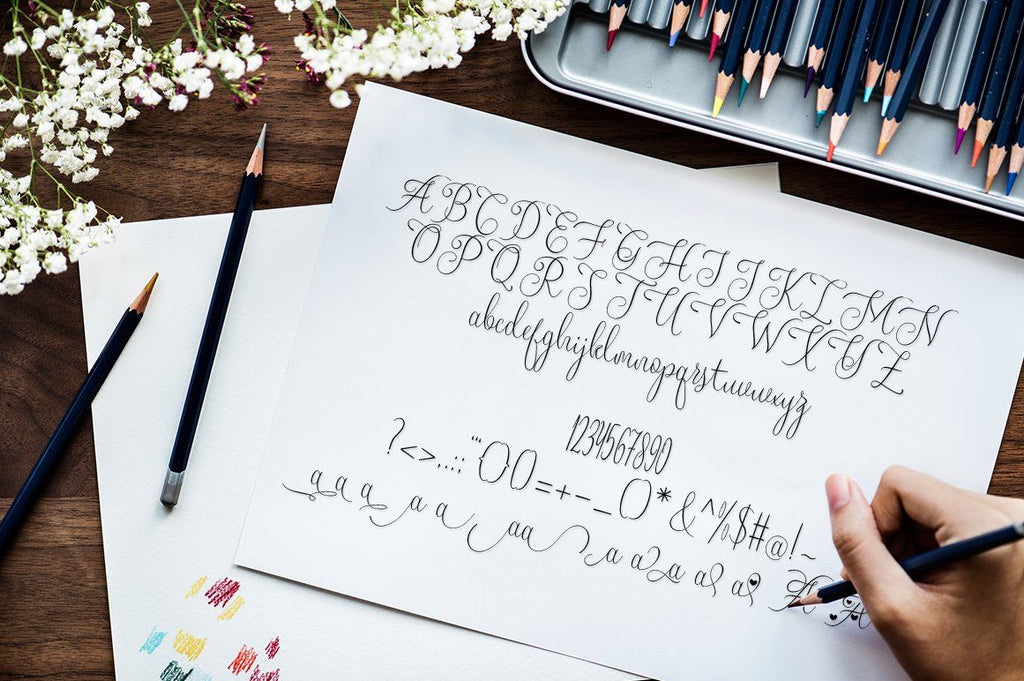 ABCDEFGHIJKLMN
OPQRSTUVWXYZ
abcdefghijklmnopqrstuvwxyz
1234567890
?<>.,:;"'{}[]=+-_()*&^%$#@!~
a a a a a aa a a a a a A A